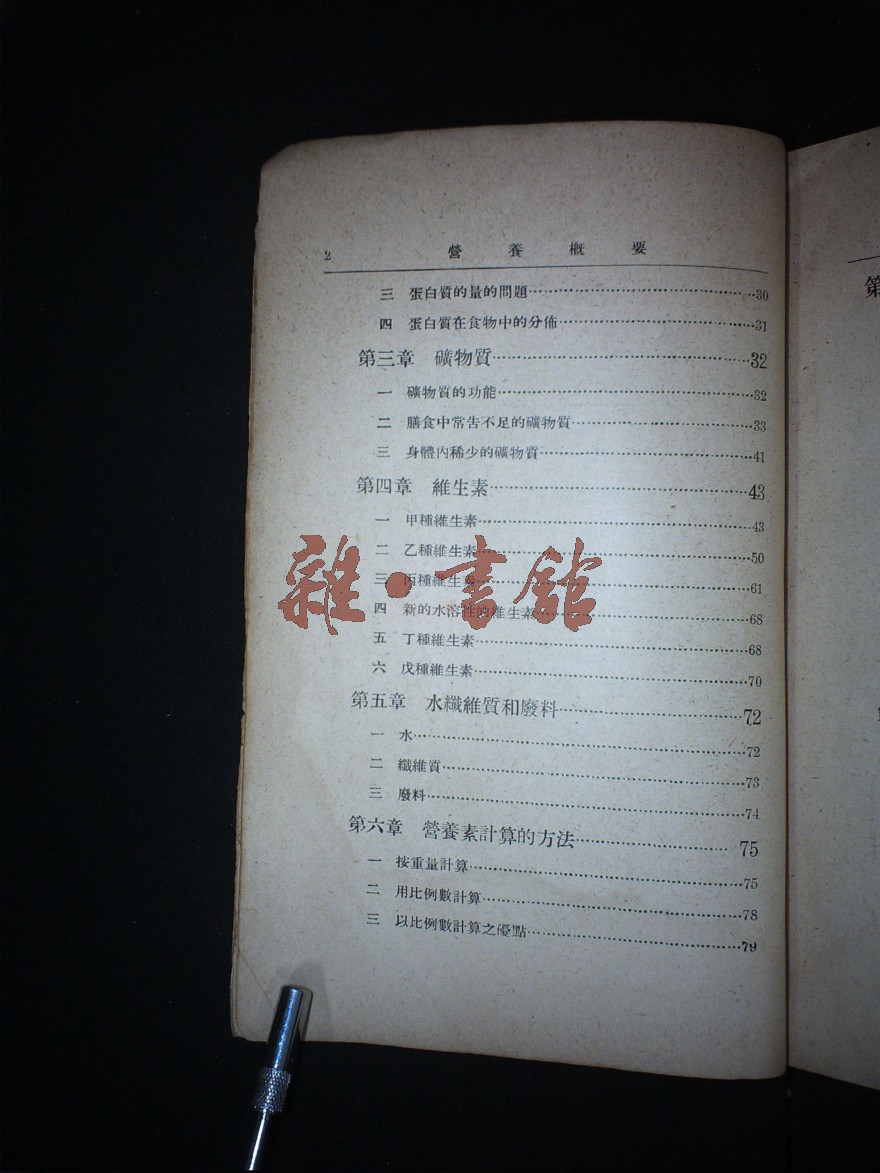 2 營養概要
三 蛋白質的量的問題……30
四 蛋白質在食物中的分佈……31
第三章 礦物質……32
一 礦物質的功能……32
二 膳食中常吿不足的礦物質……33
三 身體內稀少的礦物質……41
第四章 維生素……43
一 甲種維生素……43
二 乙種維生素……50
三 丙種維生素……61
四 新的水溶性的維生素……68
五 丁種維生素……68
六 戊種維生素……70
第五章 水纖維質和廢料……72
一 水……72
二 纖維質……73
三 廢料……74
第六章 營養素計算的方法……75
一 按重量計算……75
二 用比例數計算……78
三 以比例數計算之優點……79
雜·書館
第